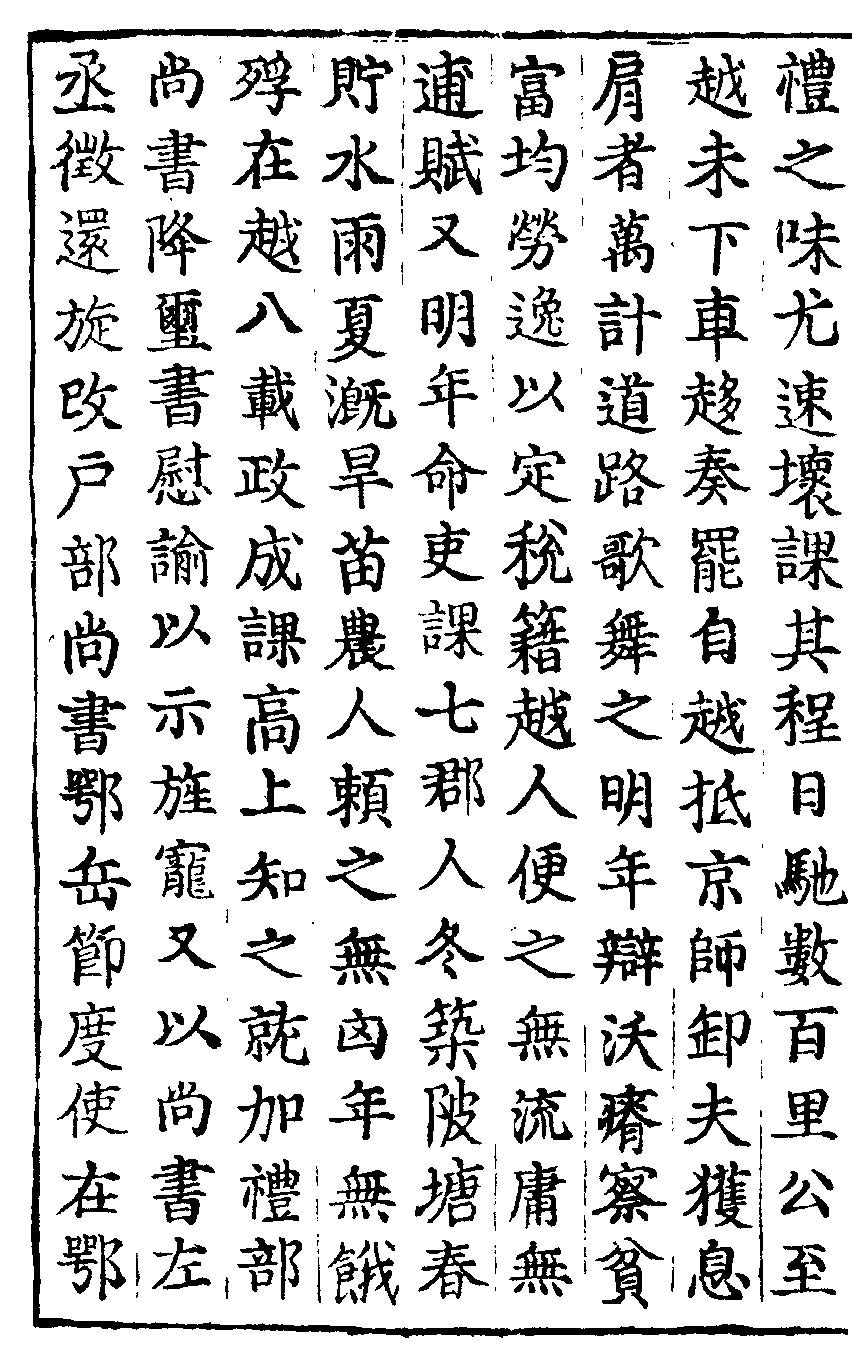 禮之味尤速壞課其程日馳數百里公至
越未下車趍奏罷自越抵京師卸夫獲息
肩者萬計道路歌舞之明年辯沃瘠察貧
富均勞逸以定稅籍越人便之無流庸無
逋賦又明年命吏課七郡人冬築陂塘春
貯水雨夏漑旱苗農人賴之無凶年無餓
殍在越八載政成課高上知之就加禮部
尚書降璽書慰諭以示旌寵又以尚書左
丞徵還旋改戶部尚書鄂岳節度使在鄂